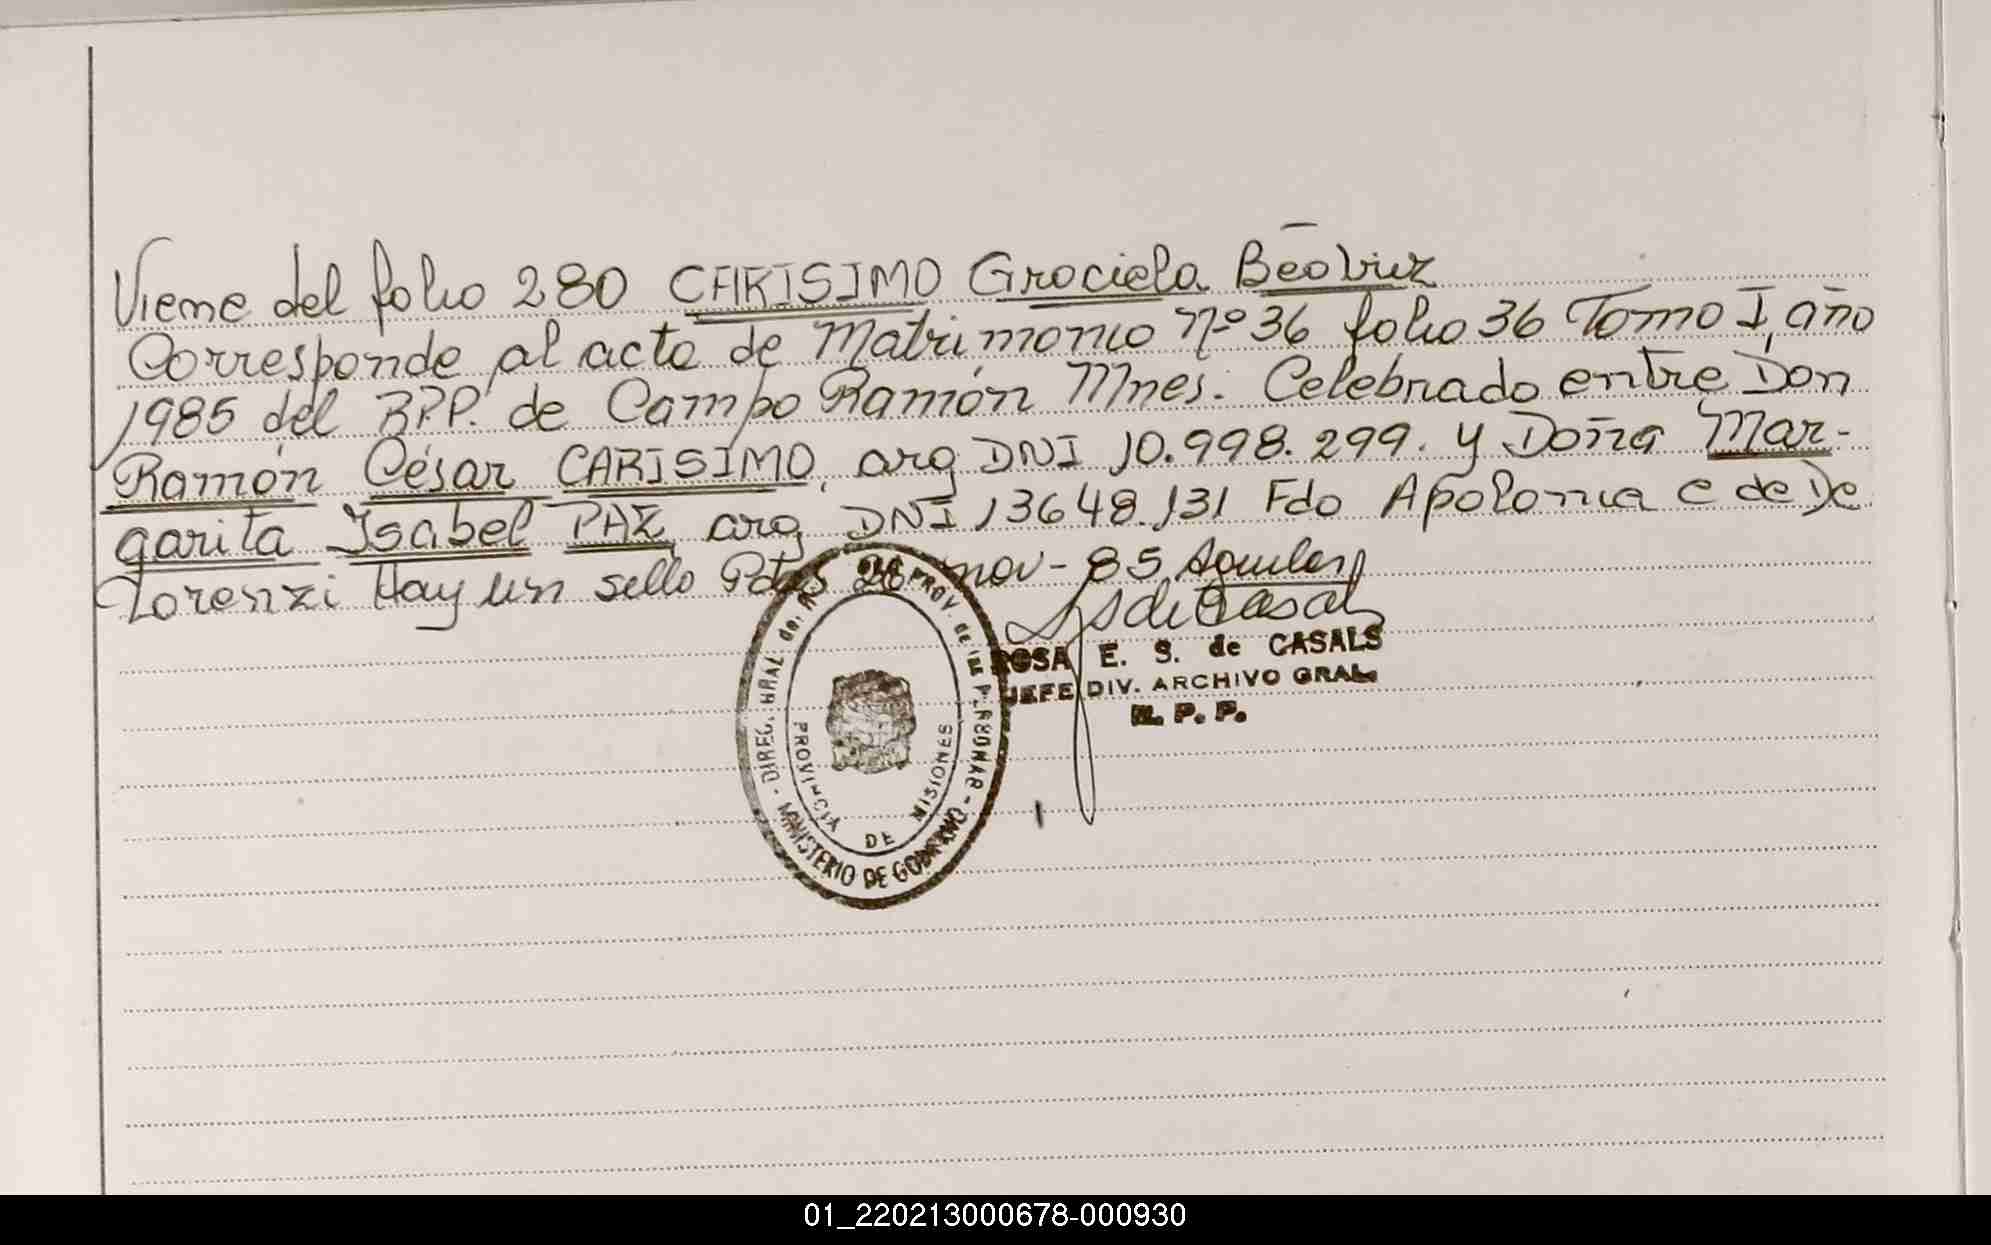 Viene del folio 280 CARISIMO Graciela Beatriz
Corresponde al acta de Matrimonio Nº 36 folio 36 Tomo I, año
1985 del R.P.P. de Campo Ramón Mnes. Celebrado entre Don
Ramón César CARISIMO, arg DNI 10.998.299. y Doña Mar-
garita Isabel PAZ arg DNI 13648.131 Fdo Apolonia C de De
Lorenzi Hay un sello Pdas 26 nov-85 Aguilar
ROSA E. S. de CASALS
JEFE DIV. ARCHIVO GRAL.
R. P. P.
PROV. de las PERSONAS - MINISTERIO DE GOBIERNO - DIREC. GRAL de
PROVINCIA DE MISIONES
01_220213000678-000930